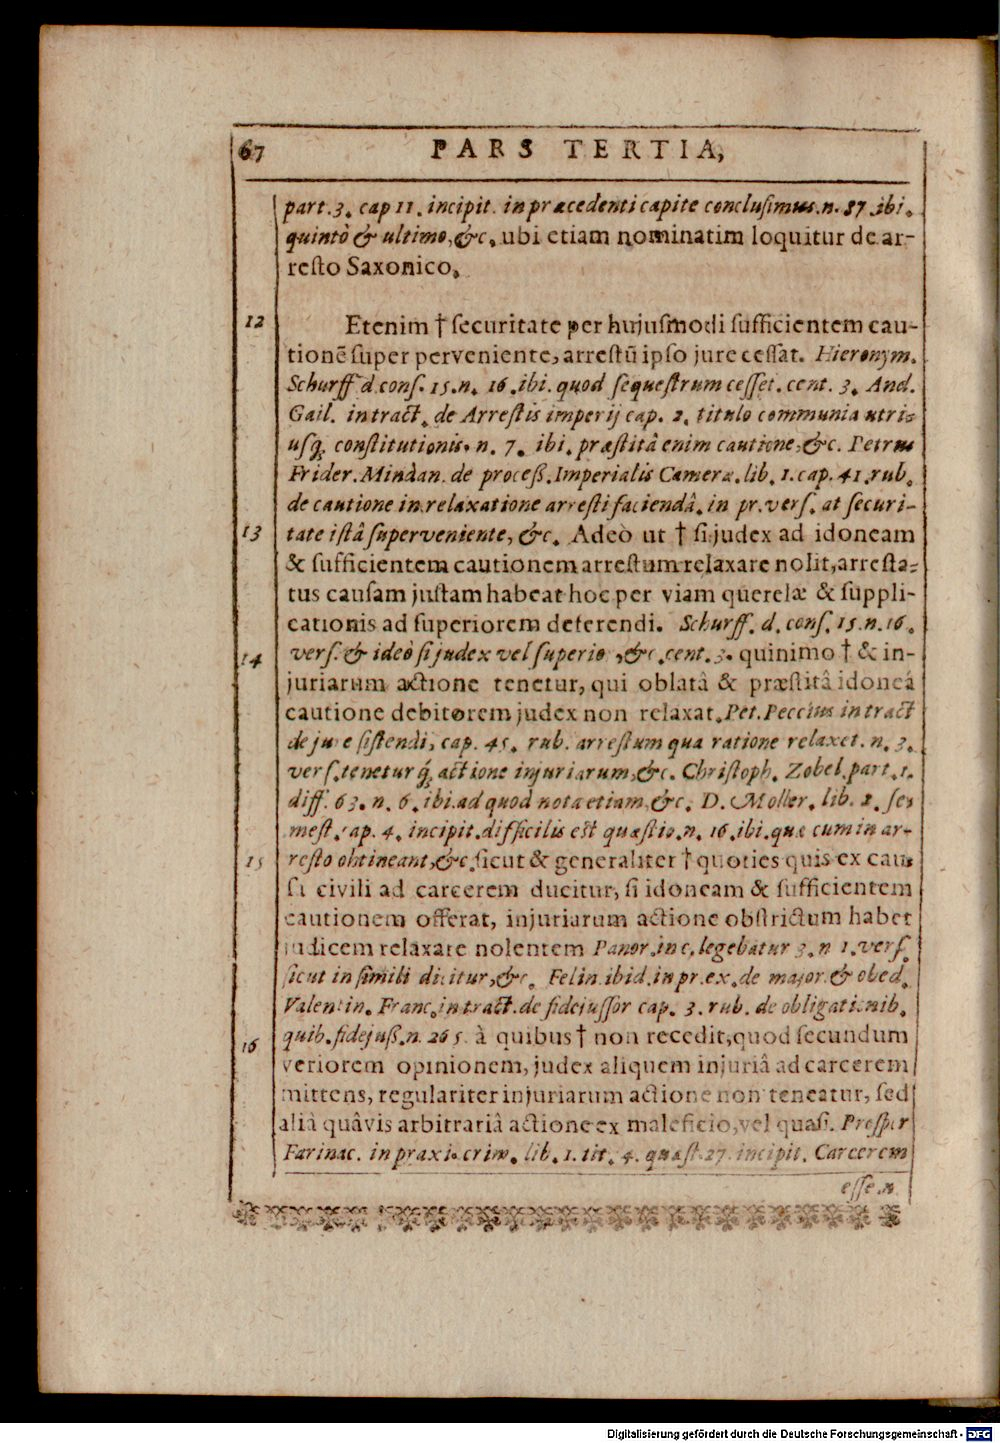 67 PARS TERTIA,
part. 3. cap 11. incipit. in præcedenti capite conclusimus. n. 87. ibi.
quintò & ultimo, &c. ubi etiam nominatim loquitur de ar-
resto Saxonico.
12 Etenim † securitate per hujusmodi sufficientem cau-
tionẽ super perveniente, arrestũ ipso jure cessat. Hieronym.
Schurff d. cons. 15. n. 16. ibi. quod sequestrum cesset. cent. 3. And.
Gail. in tract. de Arrestis imperij cap. 2. titulo communia utri-
usq; constitutionis. n. 7. ibi. præstitâ enim cautione, &c. Petrus
Frider. Mindan. de proceß. Imperialis Cameræ. lib. 1. cap. 41. rub.
de cautione in relaxatione arresti faciendâ. in pr. vers. at securi-
13 tate istâ superveniente, &c. Adeò ut † si judex ad idoneam
& sufficientem cautionem arrestum relaxare nolit, arresta-
tus causam justam habeat hoc per viam querelæ & suppli-
cationis ad superiorem deferendi. Schurff. d. cons. 15. n. 16.
14 vers. & ideò si judex vel superio , &c. cent. 3. quinimo † & in-
juriarum actione tenetur, qui oblatâ & præstitâ idoneâ
cautione debitorem judex non relaxat. Pet. Peccius in tract
de jure sistendi, cap. 45. rub. arrestum qua ratione relaxet. n. 3.
vers. tenetur q́; actione injuriarum, &c. Christoph. Zobel. part. 1.
diff. 63. n. 6. ibi. ad quod nota etiam, &c. D. Moller. lib. 2. se-
mest. cap. 4. incipit. difficilis est quæstio. n. 16. ibi. quæ cum in ar-
15 resto obtineant, &c. sicut & generaliter † quoties quis ex cau-
sa civili ad carcerem ducitur, si idoneam & sufficientem
cautionem offerat, injuriarum actione obstrictum habet
judicem relaxare nolentem Panor. in c. legebatur 3. n 1. vers.
sicut in simili dicitur, &c. Felin. ibid. in pr. ex. de major. & obed.
Valentin. Franc. in tract. de fidejussor cap. 3. rub. de obligationib.
quib. fidejuß. n. 265. à quibus † non recedit, quod secundum
16 veriorem opinionem, judex aliquem injuriâ ad carcerem
mittens, regulariter injuriarum actione non teneatur, sed
aliâ quâvis arbitrariâ actione ex maleficio, vel quasi. Prosper
Farinac. in praxi crim. lib. 1. tit. 4. quæst. 27. incipit. Carcerem
esse. n.
Digitalisierung gefördert durch die Deutsche Forschungsgemeinschaft - DFG